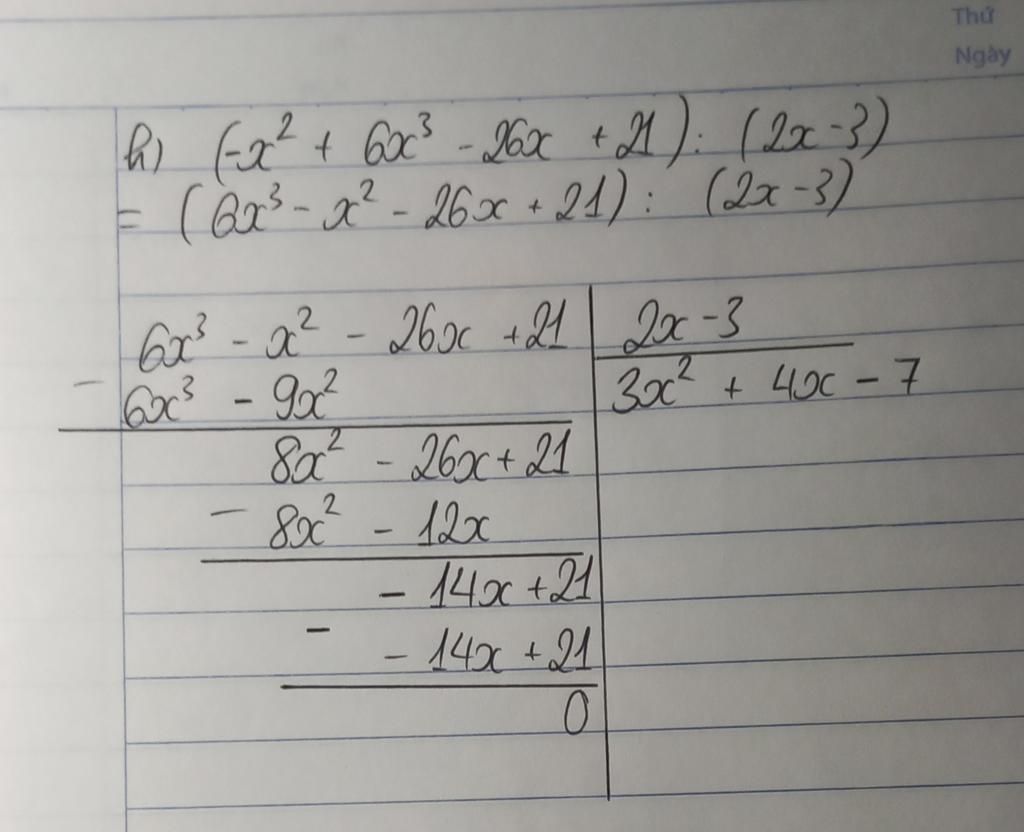 Thứ
Ngày
h) (-x² + 6x³ - 26x + 21) : (2x - 3)
= (6x³ - x² - 26x + 21) : (2x - 3)
6x³ - x² - 26x + 21 2x - 3
- 6x³ - 9x² 3x² + 4x - 7
8x² - 26x + 21
- 8x² - 12x
- 14x + 21
- - 14x + 21
0